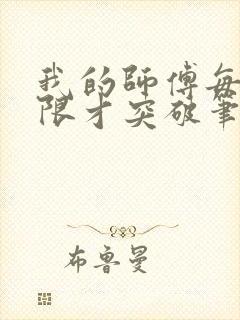 我的師傅每
限才突破筆
布魯曼